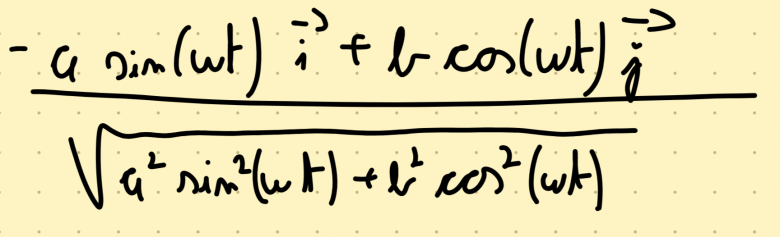 - a sin(ωt) i⃗ + b cos(ωt) j⃗
√a² sin²(ωt) + b² cos²(ωt)